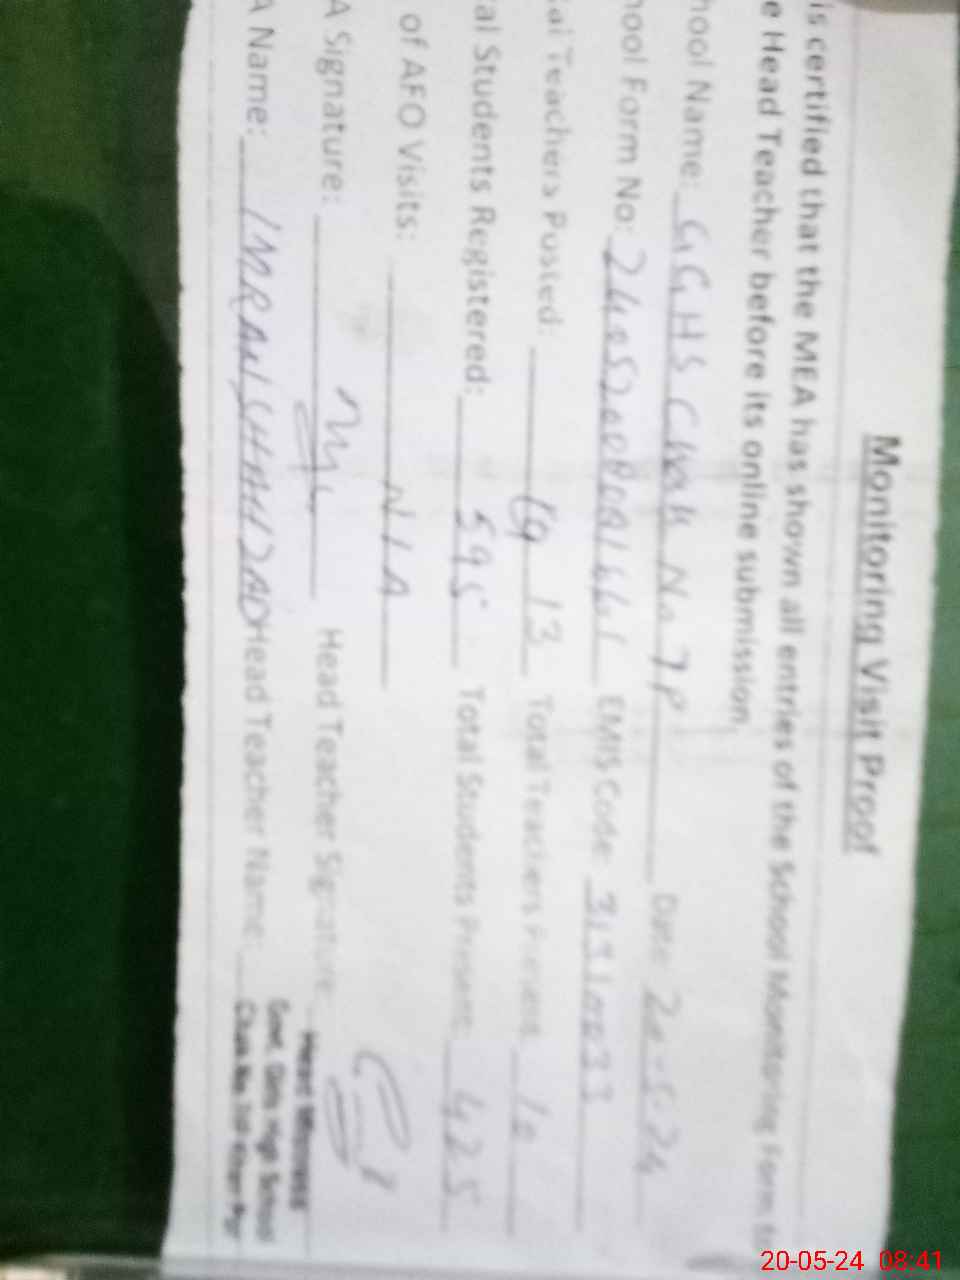 Monitoring Visit Proof
is certified that the MEA has shown all entries of the School Monitoring Form to
e Head Teacher before its online submission.
hool Name: GGHS Chak No 7P Date: 20-5-24
hool Form No: EMIS Code:
tal Teachers Posted: 13 Total Teachers Present 10
al Students Registered: 595 Total Students Present: 425
of AFO Visits: N/A
A Signature: Head Teacher Signature:
A Name: IMRAN SHAHZAD Head Teacher Name:
Head Mistress
Govt. Girls High School
Chak No.
20-05-24 08:41